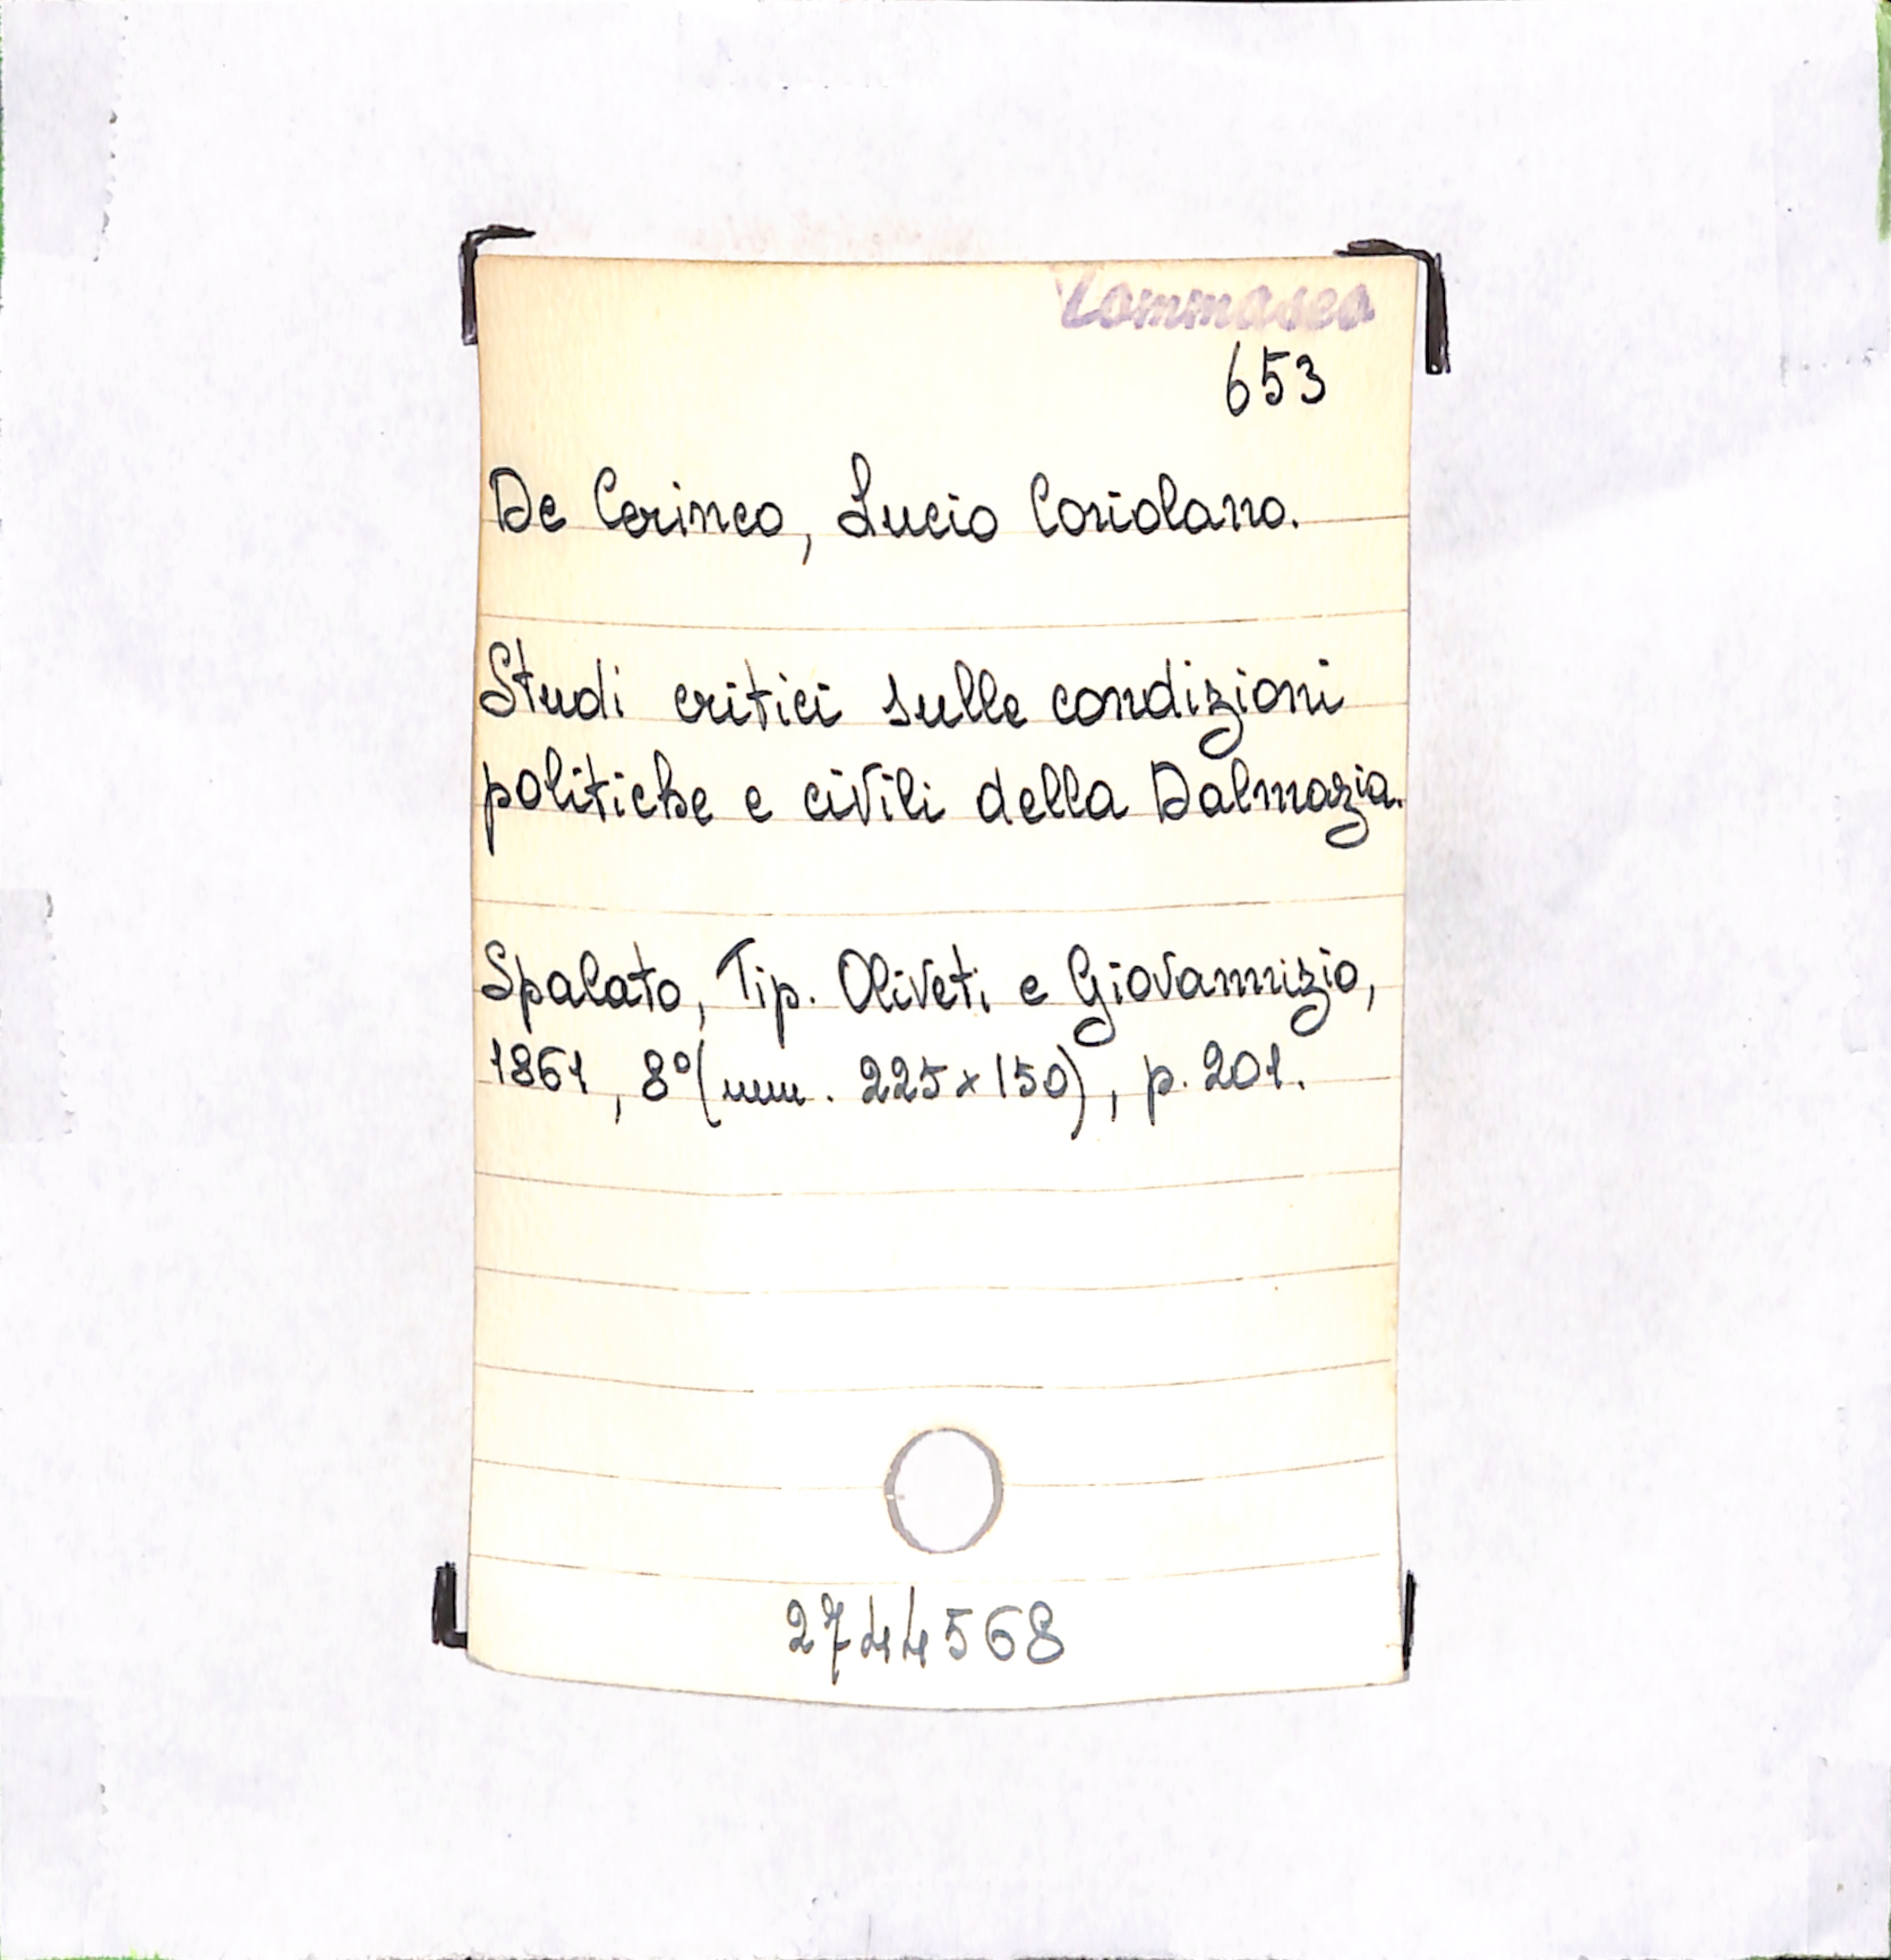 Tommaseo
653
De Cerineo, Lucio Coriolano.
Studi critici sulle condizioni
politiche e civili della Dalmazia.
Spalato, Tip. Oliveti e Giovannizio,
1861, 8º (mm. 225 x 150), p. 201.
2744568